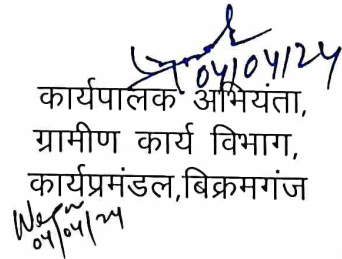 04/04/24
कार्यपालक अभियंता,
ग्रामीण कार्य विभाग,
कार्यप्रमंडल,बिक्रमगंज
04/04/24